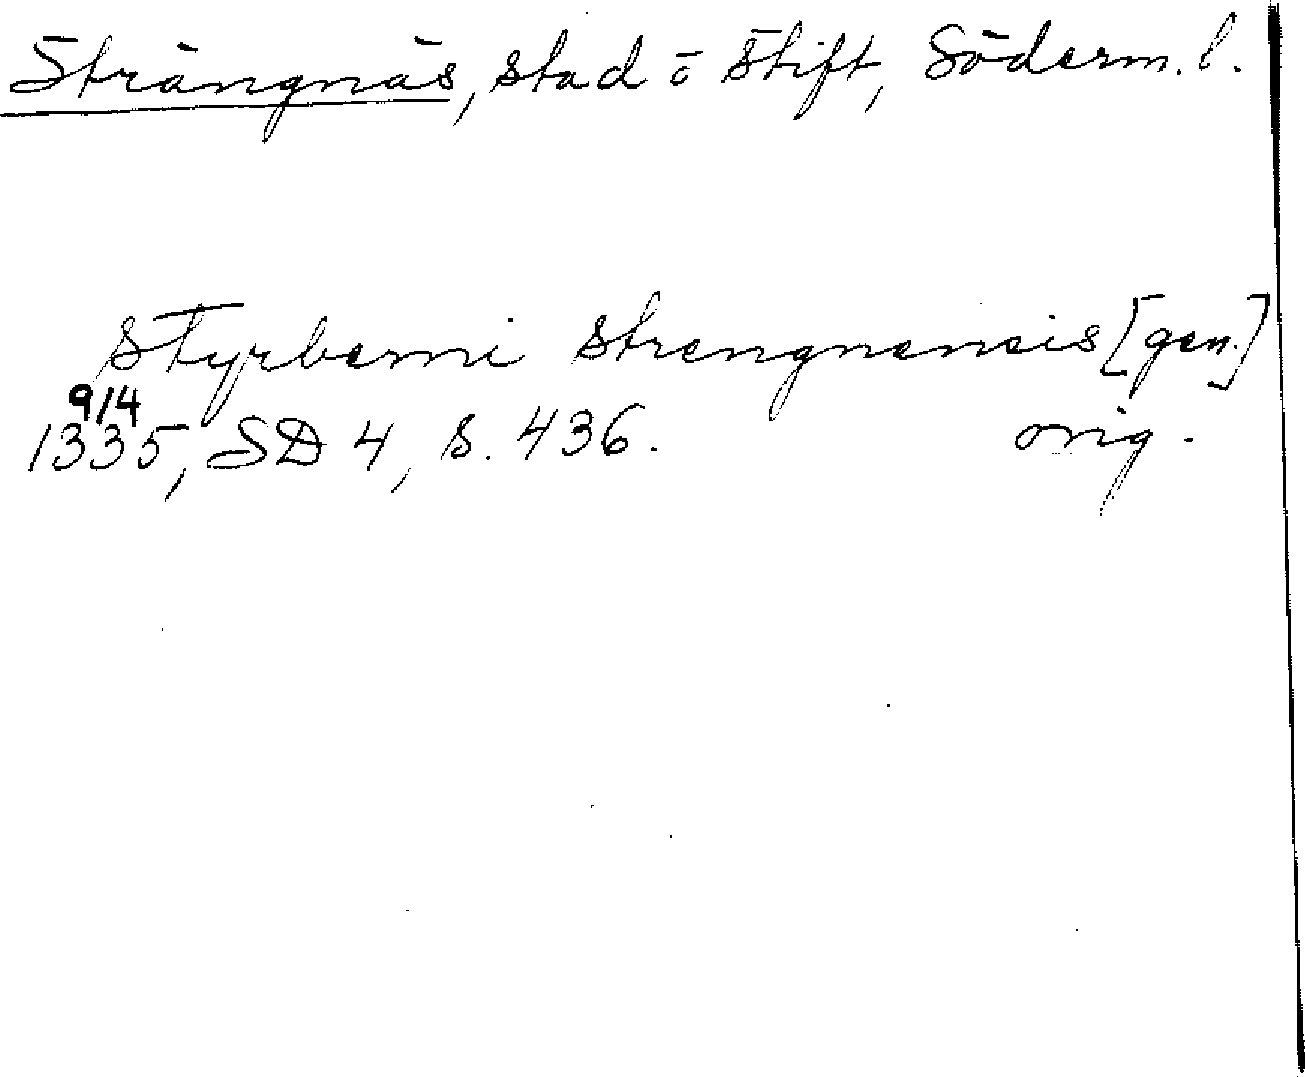 Strängnäs, stad o stift, Söderm. l.
Styrberni strengnensis [gen.]
9/4
1335, SD 4, s. 436. orig.